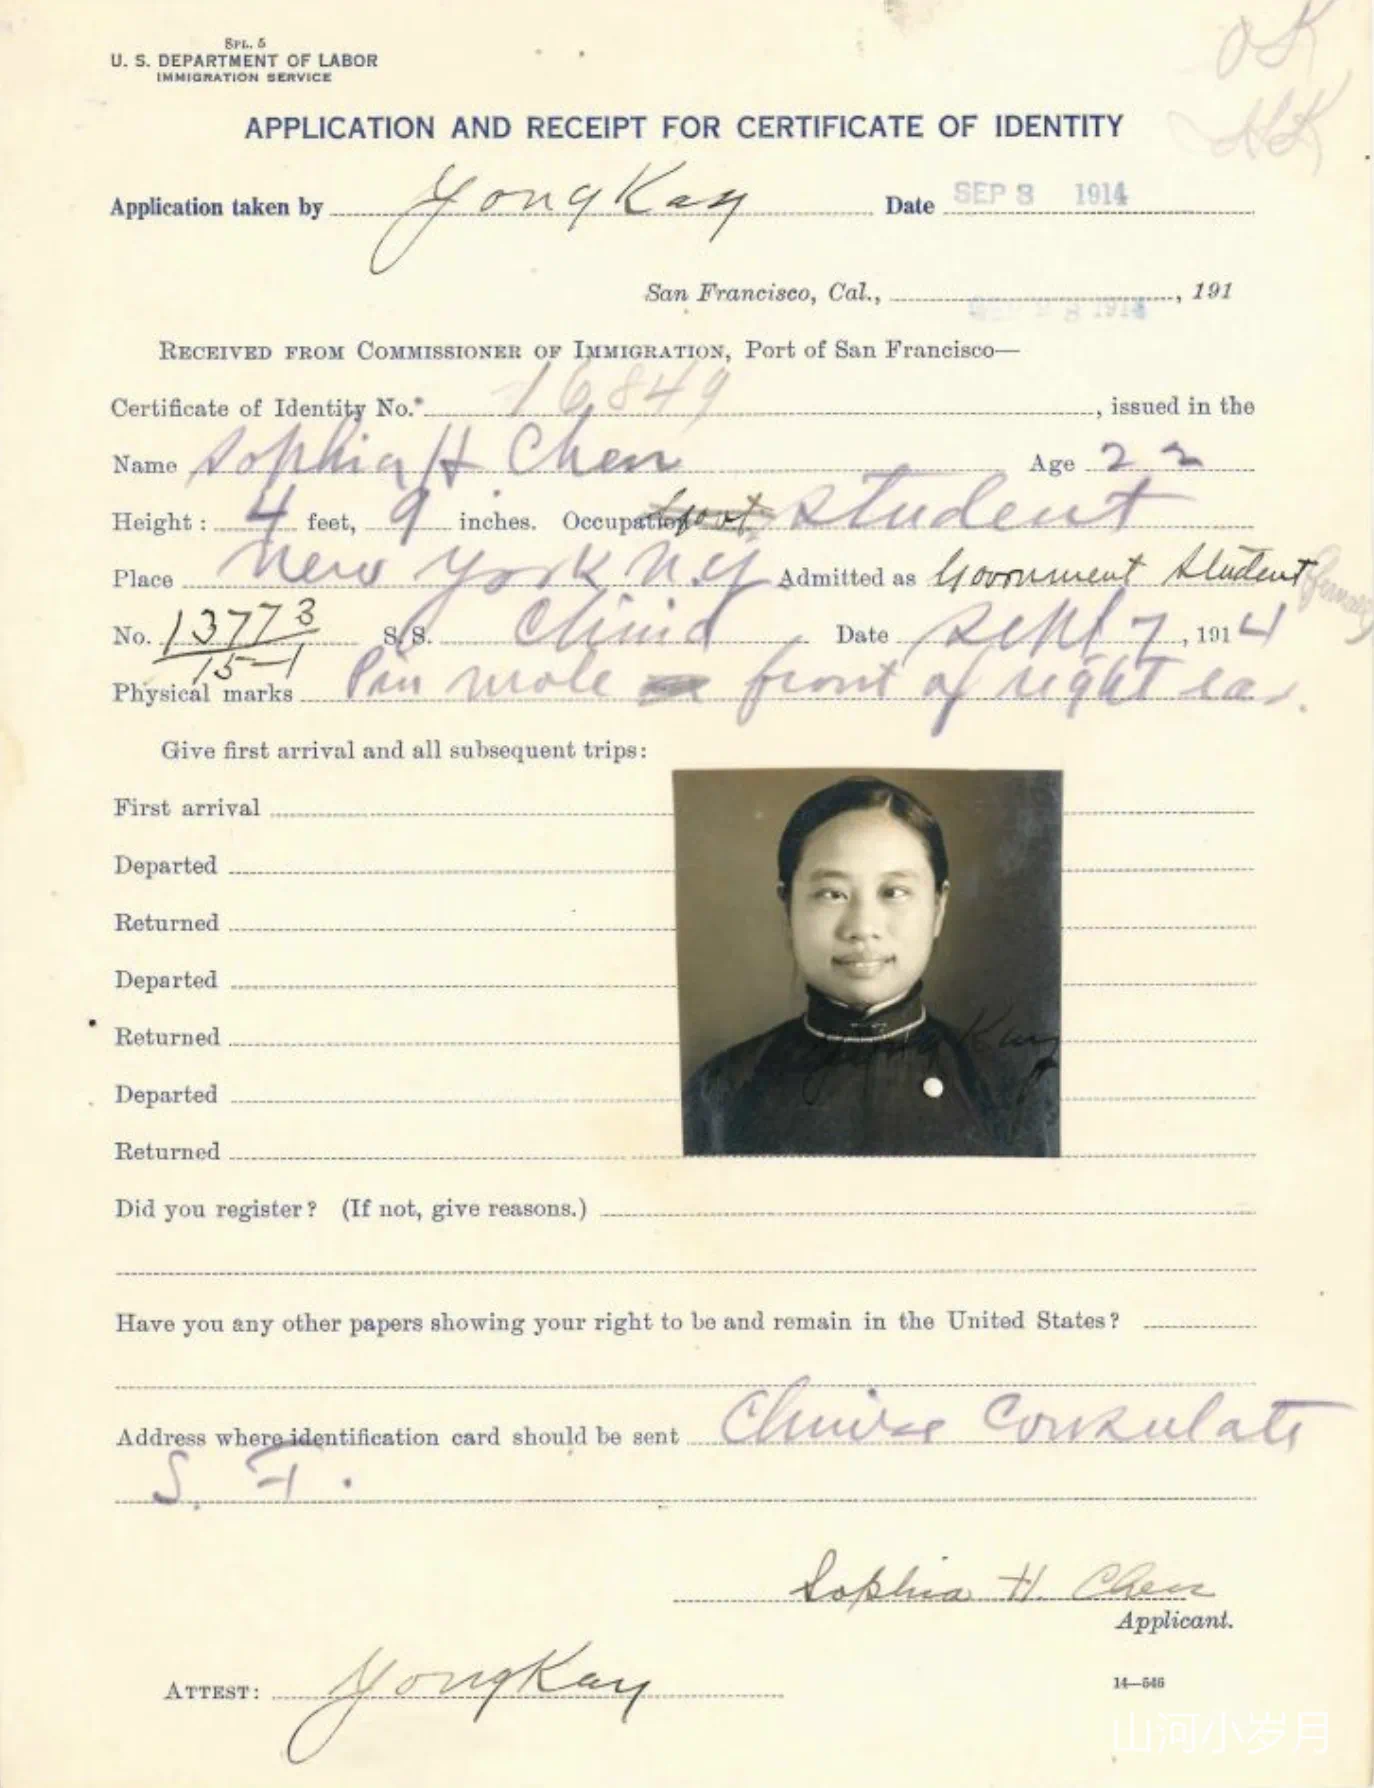 SPL. 5
U. S. DEPARTMENT OF LABOR
IMMIGRATION SERVICE
OK
APPLICATION AND RECEIPT FOR CERTIFICATE OF IDENTITY
Application taken by Yong Kay Date SEP 8 1914
San Francisco, Cal., 1914, 191
RECEIVED FROM COMMISSIONER OF IMMIGRATION, Port of San Francisco—
Certificate of Identity No.* 16849, issued in the
Name Sophia H Chen Age 22
Height: 4 feet, 9 inches. Occupation student
Place New York N.Y Admitted as Government Student (female)
No. 13773/15-1 S.S. China Date Sept 7, 1914
Physical marks Pin mole front of right ear.
Give first arrival and all subsequent trips:
First arrival
Departed
Returned
Departed
Returned
Yong Kay
Departed
Returned
Did you register? (If not, give reasons.)
Have you any other papers showing your right to be and remain in the United States?
Address where identification card should be sent Chinese Consulate
S. F.
Sophia H. Chen
Applicant.
ATTEST: Yong Kay
14—546
山河小岁月